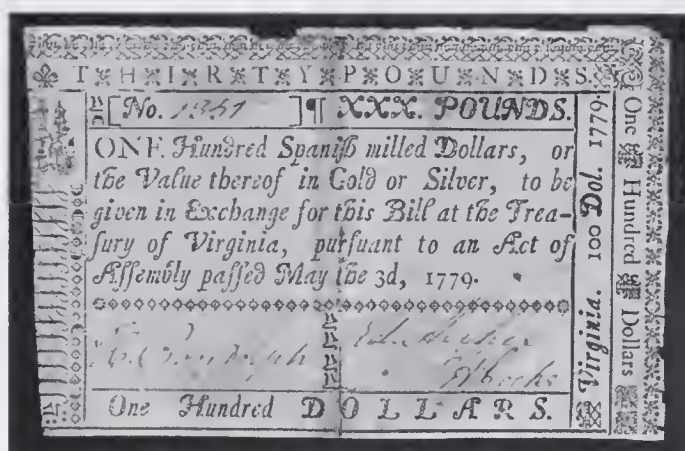 THIRTY POUNDS.
[No. 1351 ]¶ XXX. POUNDS.
ONE Hundred Spaniſh milled Dollars, or
the Value thereof in Gold or Silver, to be
given in Exchange for this Bill at the Trea-
ſury of Virginia, purſuant to an Act of
Aſſembly paſſed May the 3d, 1779.
One Hundred DOLLARS.
Virginia. 100 Dol. 1779.
One Hundred Dollars